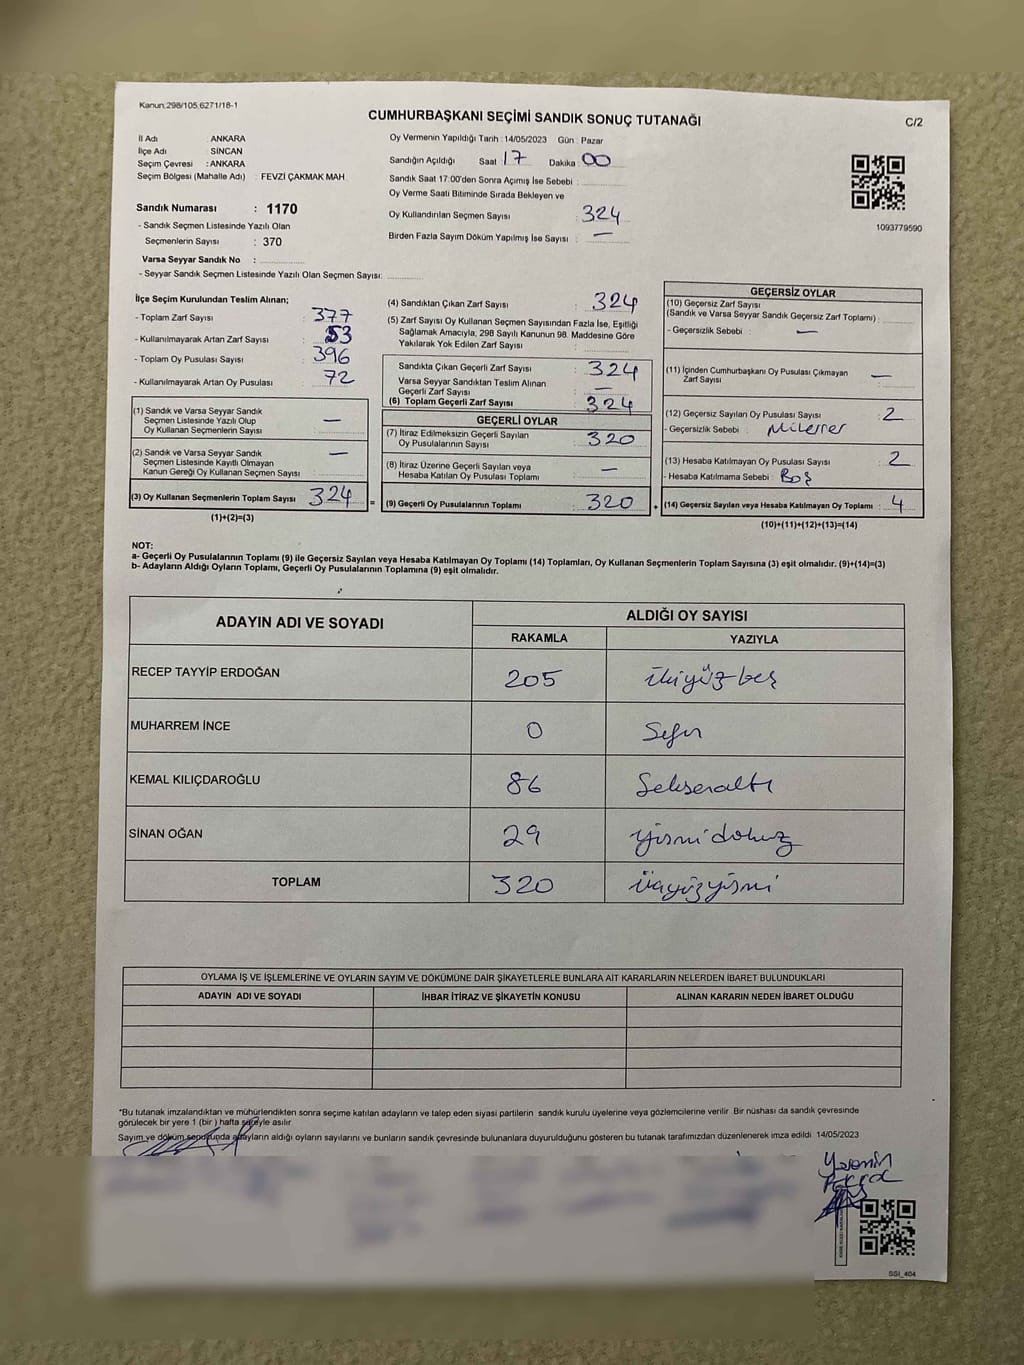 Kanun:298/105,6271/18-1
CUMHURBAŞKANI SEÇİMİ SANDIK SONUÇ TUTANAĞI
C/2
İl Adı ANKARA
İlçe Adı : SİNCAN
Seçim Çevresi : ANKARA
Seçim Bölgesi (Mahalle Adı) : FEVZİ ÇAKMAK MAH.
Oy Vermenin Yapıldığı Tarih :14/05/2023 Gün : Pazar
Sandığın Açıldığı Saat 17 Dakika 00
Sandık Saat 17:00'den Sonra Açımış İse Sebebi :
Oy Verme Saati Bitiminde Sırada Bekleyen ve
Oy Kullandırılan Seçmen Sayısı : 324
Birden Fazla Sayım Döküm Yapılmış İse Sayısı : —
1093779590
Sandık Numarası : 1170
- Sandık Seçmen Listesinde Yazılı Olan
Seçmenlerin Sayısı : 370
Varsa Seyyar Sandık No :
- Seyyar Sandık Seçmen Listesinde Yazılı Olan Seçmen Sayısı:
İlçe Seçim Kurulundan Teslim Alınan;
- Toplam Zarf Sayısı : 377
- Kullanılmayarak Artan Zarf Sayısı : 53
- Toplam Oy Pusulası Sayısı : 396
- Kullanılmayarak Artan Oy Pusulası : 72
(1) Sandık ve Varsa Seyyar Sandık
Seçmen Listesinde Yazılı Olup
Oy Kullanan Seçmenlerin Sayısı : —
(2) Sandık ve Varsa Seyyar Sandık
Seçmen Listesinde Kayıtlı Olmayan
Kanun Gereği Oy Kullanan Seçmen Sayısı : —
(3) Oy Kullanan Seçmenlerin Toplam Sayısı : 324 =
(1)+(2)=(3)
(4) Sandıktan Çıkan Zarf Sayısı : 324
(5) Zarf Sayısı Oy Kullanan Seçmen Sayısından Fazla İse, Eşitliği
Sağlamak Amacıyla, 298 Sayılı Kanunun 98. Maddesine Göre
Yakılarak Yok Edilen Zarf Sayısı :
Sandıkta Çıkan Geçerli Zarf Sayısı : 324
Varsa Seyyar Sandıktan Teslim Alınan
Geçerli Zarf Sayısı : —
(6) Toplam Geçerli Zarf Sayısı : 324
GEÇERLİ OYLAR
(7) İtiraz Edilmeksizin Geçerli Sayılan
Oy Pusulalarının Sayısı : 320
(8) İtiraz Üzerine Geçerli Sayılan veya
Hesaba Katılan Oy Pusulası Toplamı : —
(9) Geçerli Oy Pusulalarının Toplamı : 320 +
GEÇERSİZ OYLAR
(10) Geçersiz Zarf Sayısı
(Sandık ve Varsa Seyyar Sandık Geçersiz Zarf Toplamı) :
- Geçersizlik Sebebi : —
(11) İçinden Cumhurbaşkanı Oy Pusulası Çıkmayan
Zarf Sayısı : —
(12) Geçersiz Sayılan Oy Pusulası Sayısı : 2
- Geçersizlik Sebebi :
(13) Hesaba Katılmayan Oy Pusulası Sayısı : 2
- Hesaba Katılmama Sebebi : Boş
(14) Geçersiz Sayılan veya Hesaba Katılmayan Oy Toplamı : 4
(10)+(11)+(12)+(13)=(14)
NOT:
a- Geçerli Oy Pusulalarının Toplamı (9) ile Geçersiz Sayılan veya Hesaba Katılmayan Oy Toplamı (14) Toplamları, Oy Kullanan Seçmenlerin Toplam Sayısına (3) eşit olmalıdır. (9)+(14)=(3)
b- Adayların Aldığı Oyların Toplamı, Geçerli Oy Pusulalarının Toplamına (9) eşit olmalıdır.
ADAYIN ADI VE SOYADI
ALDIĞI OY SAYISI
RAKAMLA YAZIYLA
RECEP TAYYİP ERDOĞAN 205 ikiyüzbeş
MUHARREM İNCE 0 Sıfır
KEMAL KILIÇDAROĞLU 86 Seksenaltı
SİNAN OĞAN 29 yirmidokuz
TOPLAM 320 üçyüzyirmi
OYLAMA İŞ VE İŞLEMLERİNE VE OYLARIN SAYIM VE DÖKÜMÜNE DAİR ŞİKAYETLERLE BUNLARA AİT KARARLARIN NELERDEN İBARET BULUNDUKLARI
ADAYIN ADI VE SOYADI İHBAR İTİRAZ VE ŞİKAYETİN KONUSU ALINAN KARARIN NEDEN İBARET OLDUĞU
*Bu tutanak imzalandıktan ve mühürlendikten sonra seçime katılan adayların ve talep eden siyasi partilerin sandık kurulu üyelerine veya gözlemcilerine verilir. Bir nüshası da sandık çevresinde
görülecek bir yere 1 (bir ) hafta süreyle asılır.
Sayım ve döküm sonucunda adayların aldığı oyların sayılarını ve bunların sandık çevresinde bulunanlara duyurulduğunu gösteren bu tutanak tarafımızdan düzenlenerek imza edildi 14/05/2023
Yasemin
SGI_404